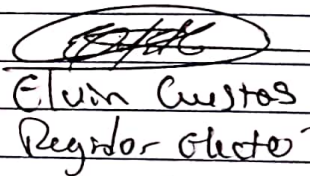 Elvin Cuestas
Regidor electo